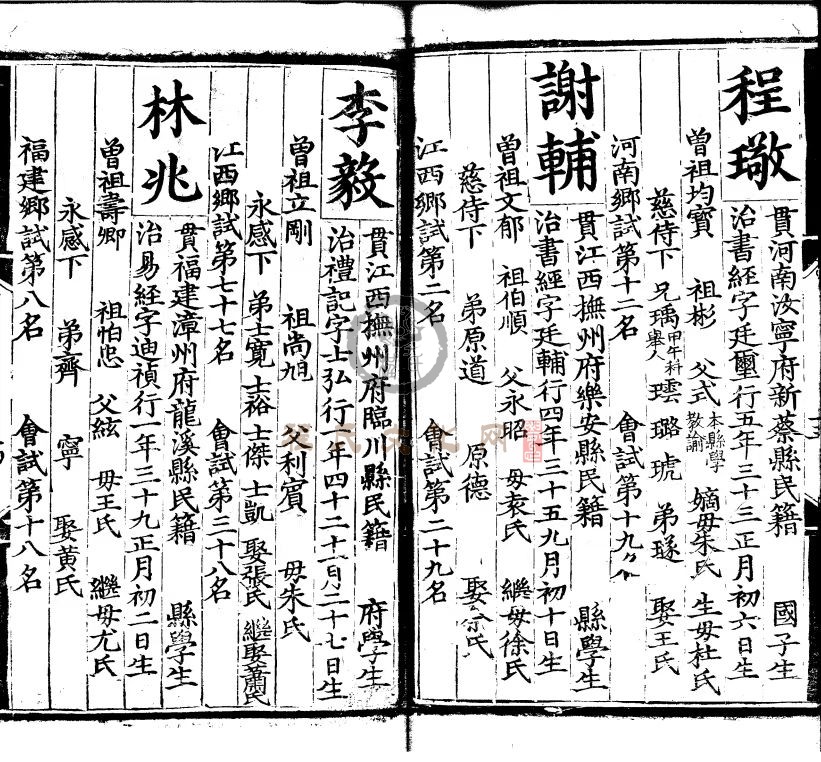 程璥
貫河南汝寧府新蔡縣民籍 國子生
治書經字廷璽行五年三十三正月初六日生
曾祖均寶 祖彬 父式本縣學教諭 嫡母朱氏 生母杜氏
慈侍下 兄瑀甲午科舉人 璭 璐 琥 弟璲 娶王氏
河南鄉試第十二名 會試第十九名
謝輔
貫江西撫州府樂安縣民籍 縣學生
治書經字廷輔行四年三十五九月初十日生
曾祖文郁 祖伯順 父永昭 母袁氏 繼母徐氏
慈侍下 弟原道 原德 娶余氏
江西鄉試第二名 會試第二十九名
李毅
貫江西撫州府臨川縣民籍 府學生
治禮記字士弘行一年四十二十一月二十七日生
曾祖立剛 祖尚旭 父利賓 母朱氏
永感下 弟士寬 士裕 士傑 士凱 娶張氏 繼娶蕭氏
江西鄉試第七十七名 會試第三十八名
林兆
貫福建漳州府龍溪縣民籍 縣學生
治易經字迪禎行一年三十九正月初二日生
曾祖壽卿 祖怕忠 父絃 母王氏 繼母尤氏
永感下 弟齊 寧 娶黃氏
福建鄉試第八名 會試第十八名